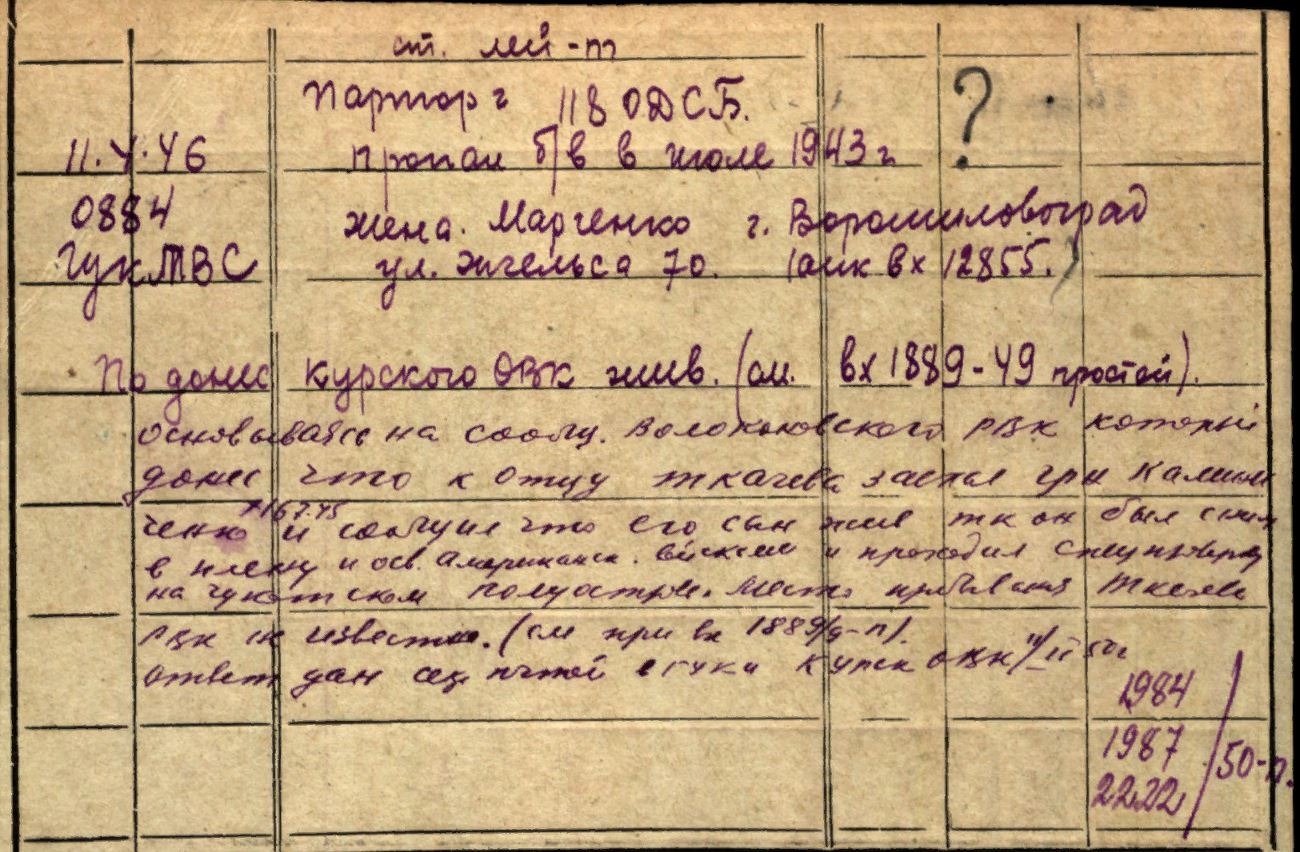 ст. лей-т
Парторг 118 ОДСБ. ?
11.V.46 пропал б/в в июле 1943 г
0884 жена. Марченко г. Ворошиловоград
ГУК МВС ул. Энгельса 70. (анк вх 12855.)
По донес Курского ОВК жив. (см. вх 1889-49 простой).
основываясь на сообщ. Волоконовского РВК который
донес что к отцу Ткачева заехал гр-н
ченко и сообщил что его сын жив тк он был с ним
в плену и осв. Американск. войсками и проходил спецпроверку
на чукотском полуострове. место пребывания Ткачева
РВК не известно. (см при вх 1889/9-п).
ответ дан Курск ОВК
1984
1987 /50-п.
2222